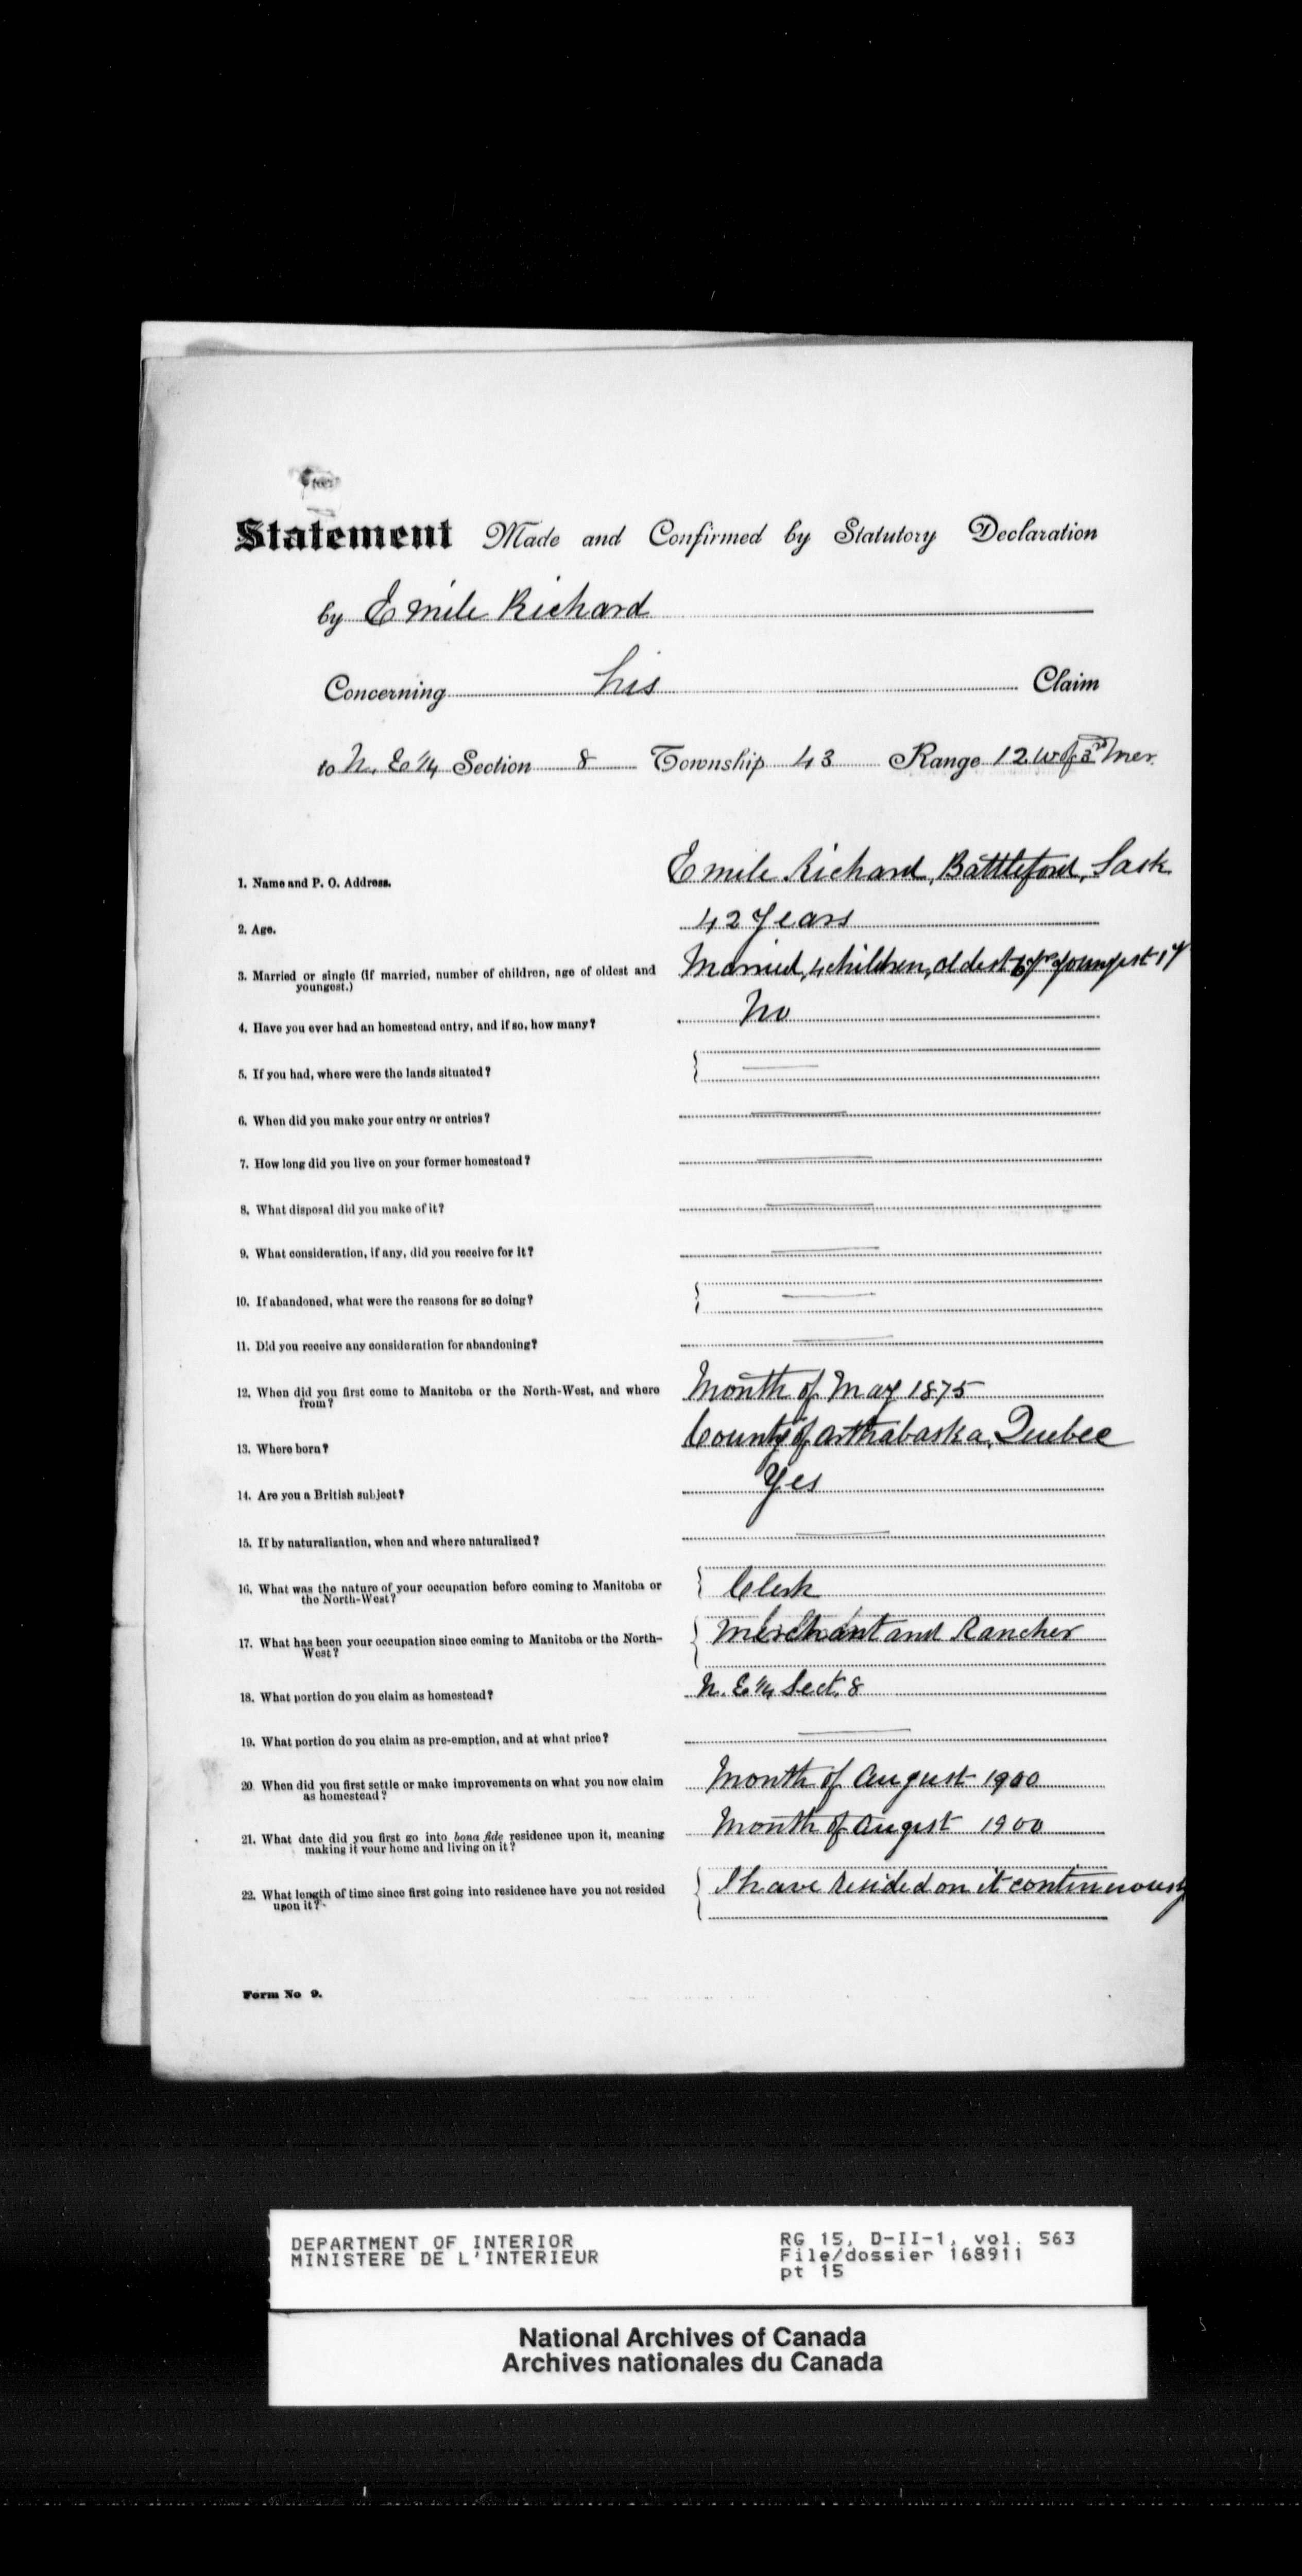 Statement Made and Confirmed by Statutory Declaration
by Emile Richard
Concerning his Claim
to N. E 1/4 Section 8 Township 43 Range 12 W of 3rd Mer.
1. Name and P. O. Address. Emile Richard, Battleford, Sask
2. Age. 42 Years
3. Married or single (If married, number of children, age of oldest and Married, 4 children, oldest 6 yrs youngest 1 y
youngest.)
4. Have you ever had an homestead entry, and if so, how many? No
5. If you had, where were the lands situated?
6. When did you make your entry or entries?
7. How long did you live on your former homestead?
8. What disposal did you make of it?
9. What consideration, if any, did you receive for it?
10. If abandoned, what were the reasons for so doing?
11. Did you receive any consideration for abandoning?
12. When did you first come to Manitoba or the North-West, and where Month of May 1875
from?
13. Where born? County of Arthabaska, Quebec
14. Are you a British subject? Yes
15. If by naturalization, when and where naturalized?
16. What was the nature of your occupation before coming to Manitoba or Clerk
the North-West?
17. What has been your occupation since coming to Manitoba or the North- Merchant and Rancher
West?
18. What portion do you claim as homestead? N. E 1/4 Sect. 8
19. What portion do you claim as pre-emption, and at what price?
20. When did you first settle or make improvements on what you now claim Month of August 1900
as homestead?
21. What date did you first go into bona fide residence upon it, meaning Month of Augest 1900
making it your home and living on it?
22. What length of time since first going into residence have you not resided I have resided on it continuously
upon it?
Form No 9.
DEPARTMENT OF INTERIOR RG 15, D-II-1, vol. 563
MINISTERE DE L'INTERIEUR File/dossier 168911
pt 15
National Archives of Canada
Archives nationales du Canada